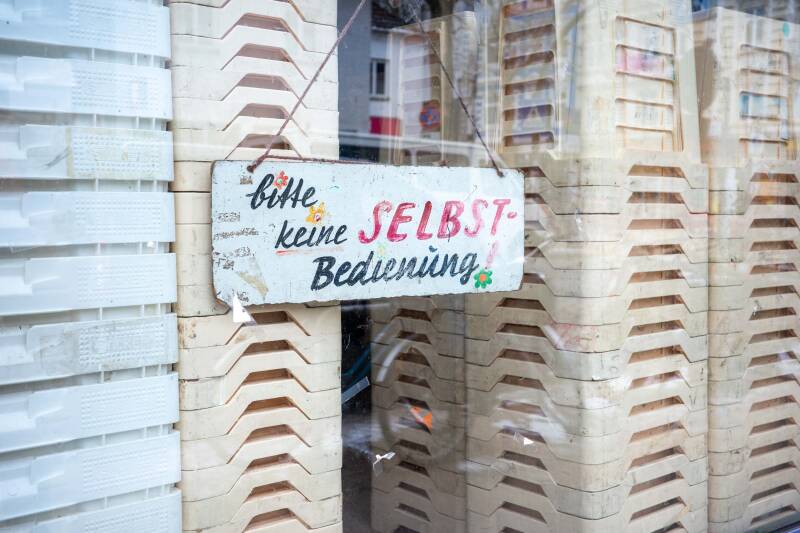 bitte
keine SELBST-
Bedienung!